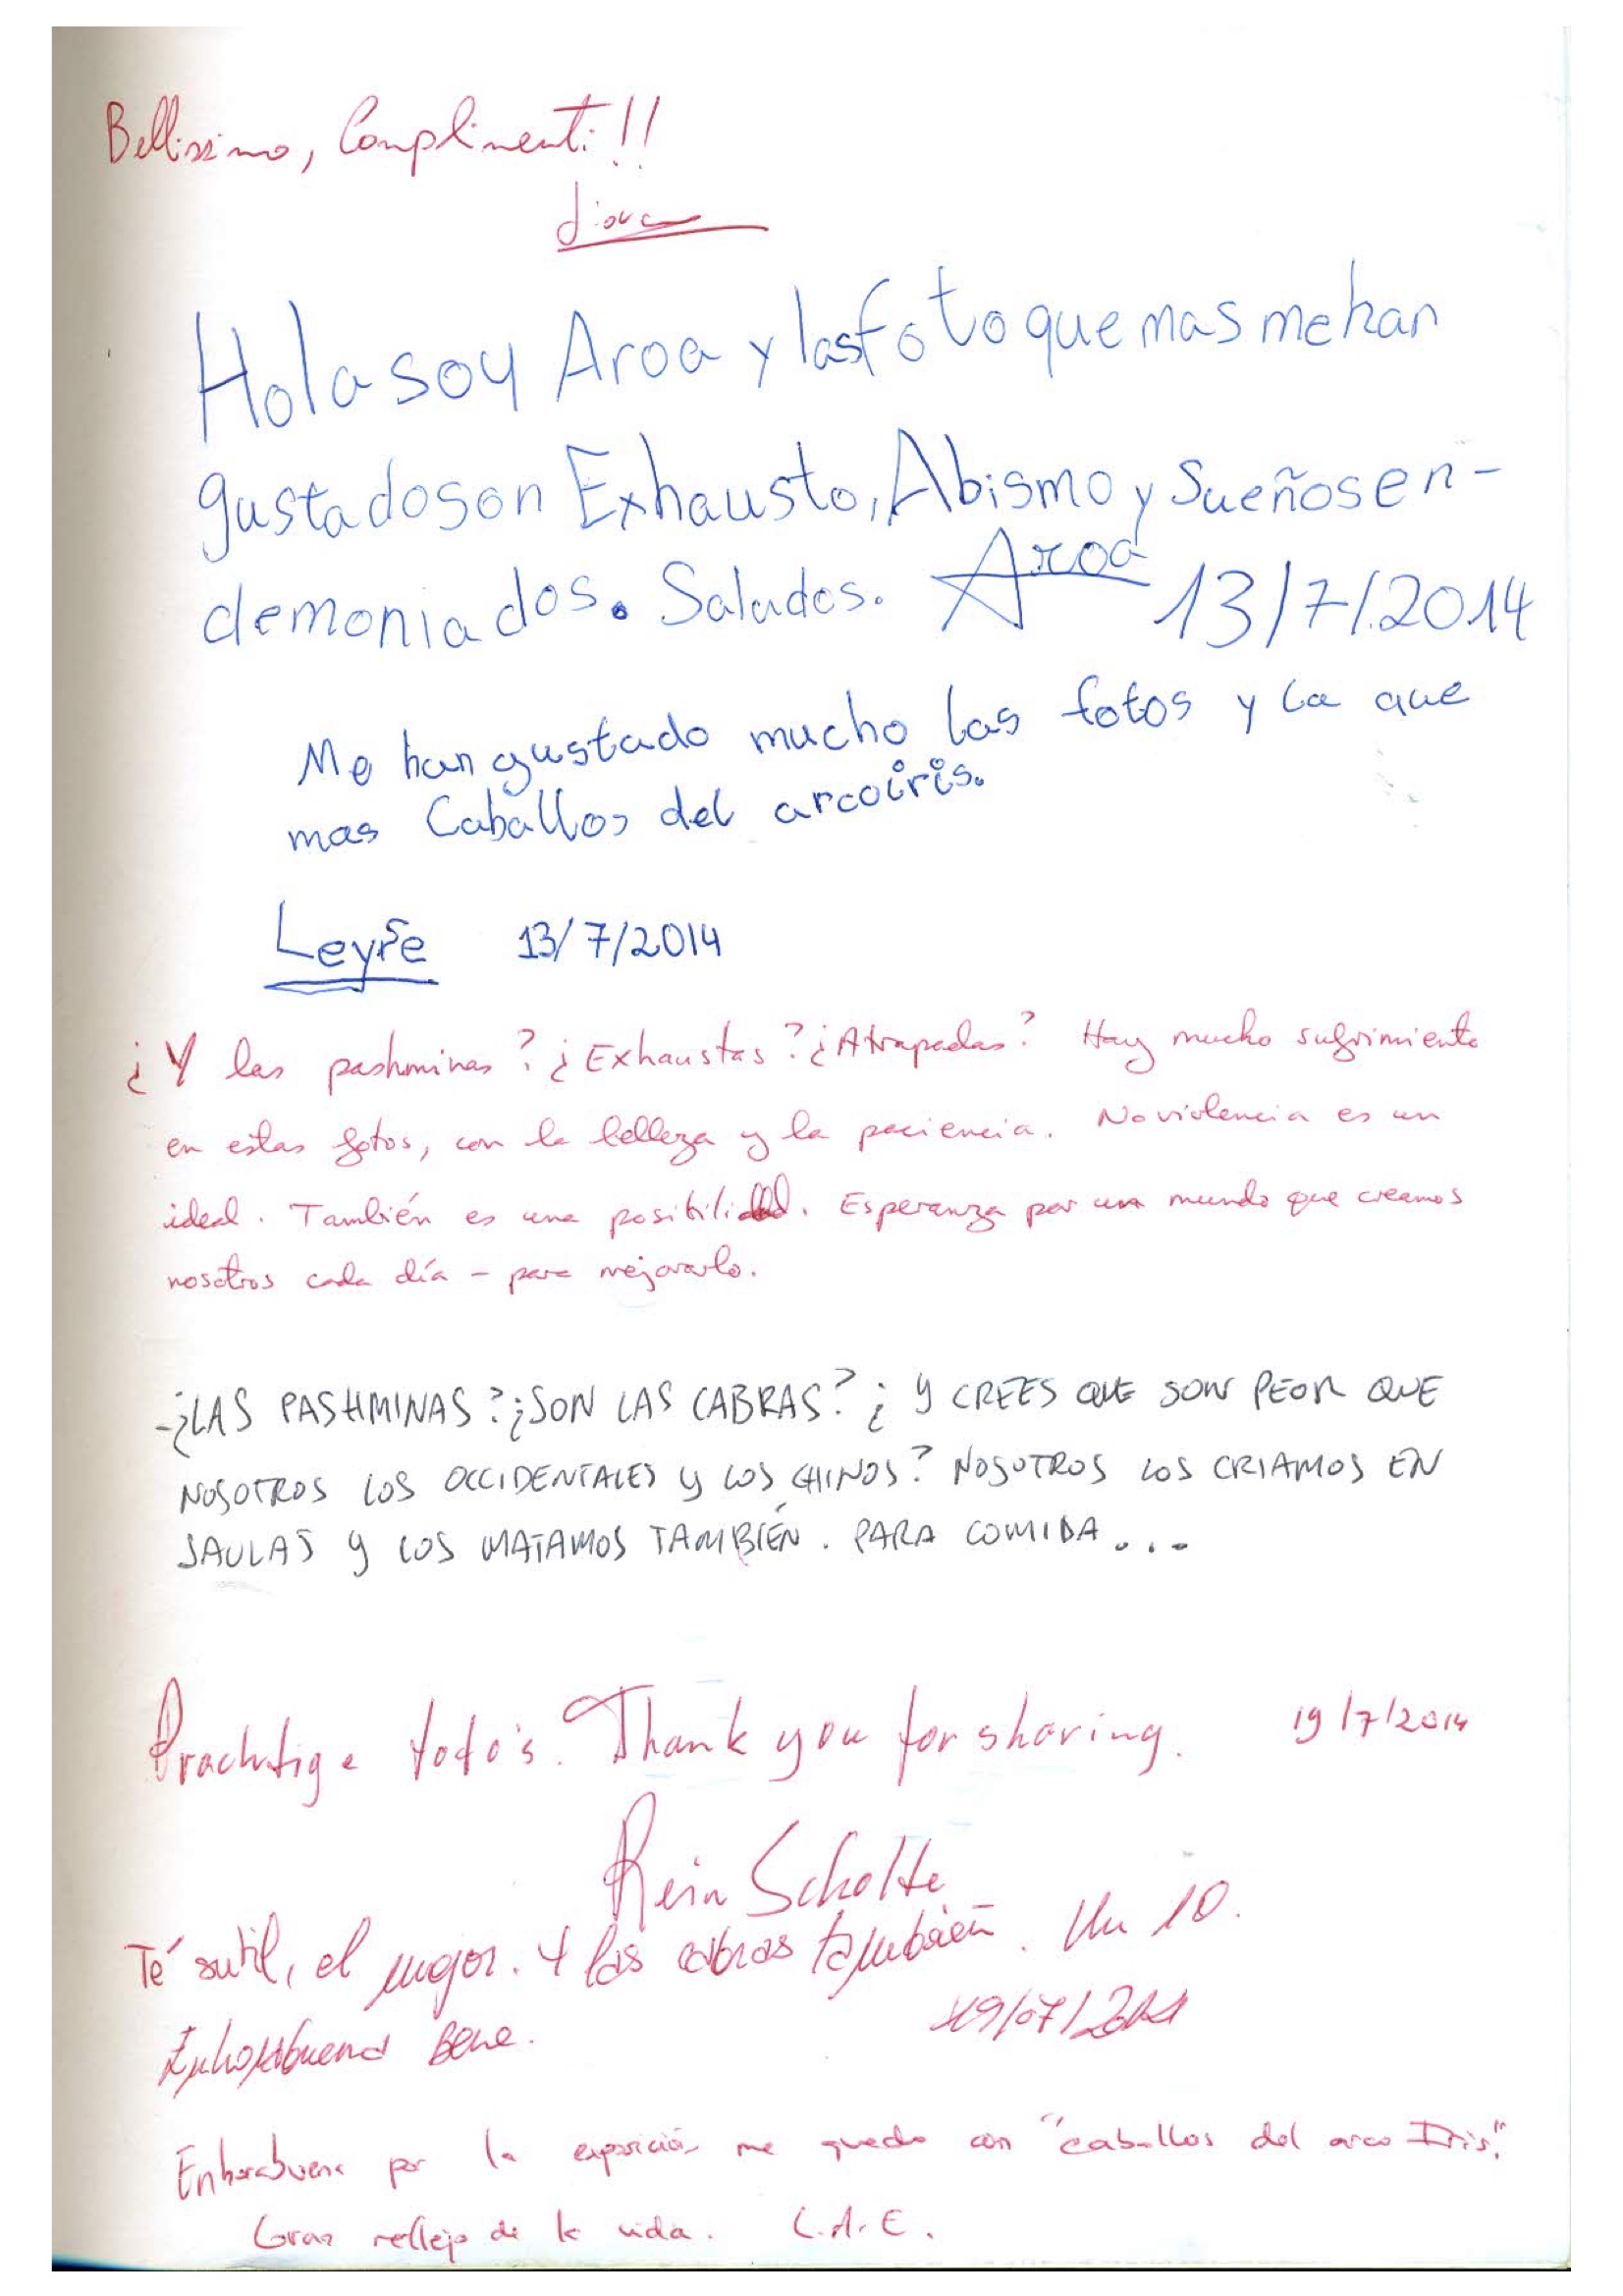 Bellissimo, Complimenti!!
Hola soy Aroa y las foto que mas me han
gustado son Exhausto, Abismo y Sueños en-
demoniados. Saludos. Aroa 13/7/2014
Me han gustado mucho las fotos y la que
mas Caballos del arcoiris.
Leyre 13/7/2014
¿Y las pashminas? ¿Exhaustas? ¿Atrapadas? Hay mucho sufrimiento
en estas fotos, con la belleza y la paciencia. No violencia es un
ideal. También es una posibilidad. Esperanza por un mundo que creamos
nosotros cada día - para mejorarlo.
-¿LAS PASHMINAS? ¿SON LAS CABRAS? ¿Y CREES QUE SON PEOR QUE
NOSOTROS LOS OCCIDENTALES Y LOS CHINOS? NOSOTROS LOS CRIAMOS EN
JAULAS Y LOS MATAMOS TAMBIÉN. PARA COMIDA...
Prachtige foto's. Thank you for sharing. 19/7/2014
Rein Scholte
Té sutil, el mejor. Y las cabras también. Un 10.
19/07/2014
Enhorabuena Bene.
Enhorabuena por la exposición me quedo con "caballos del arco Iris."
Gran reflejo de la vida. C.A.E.